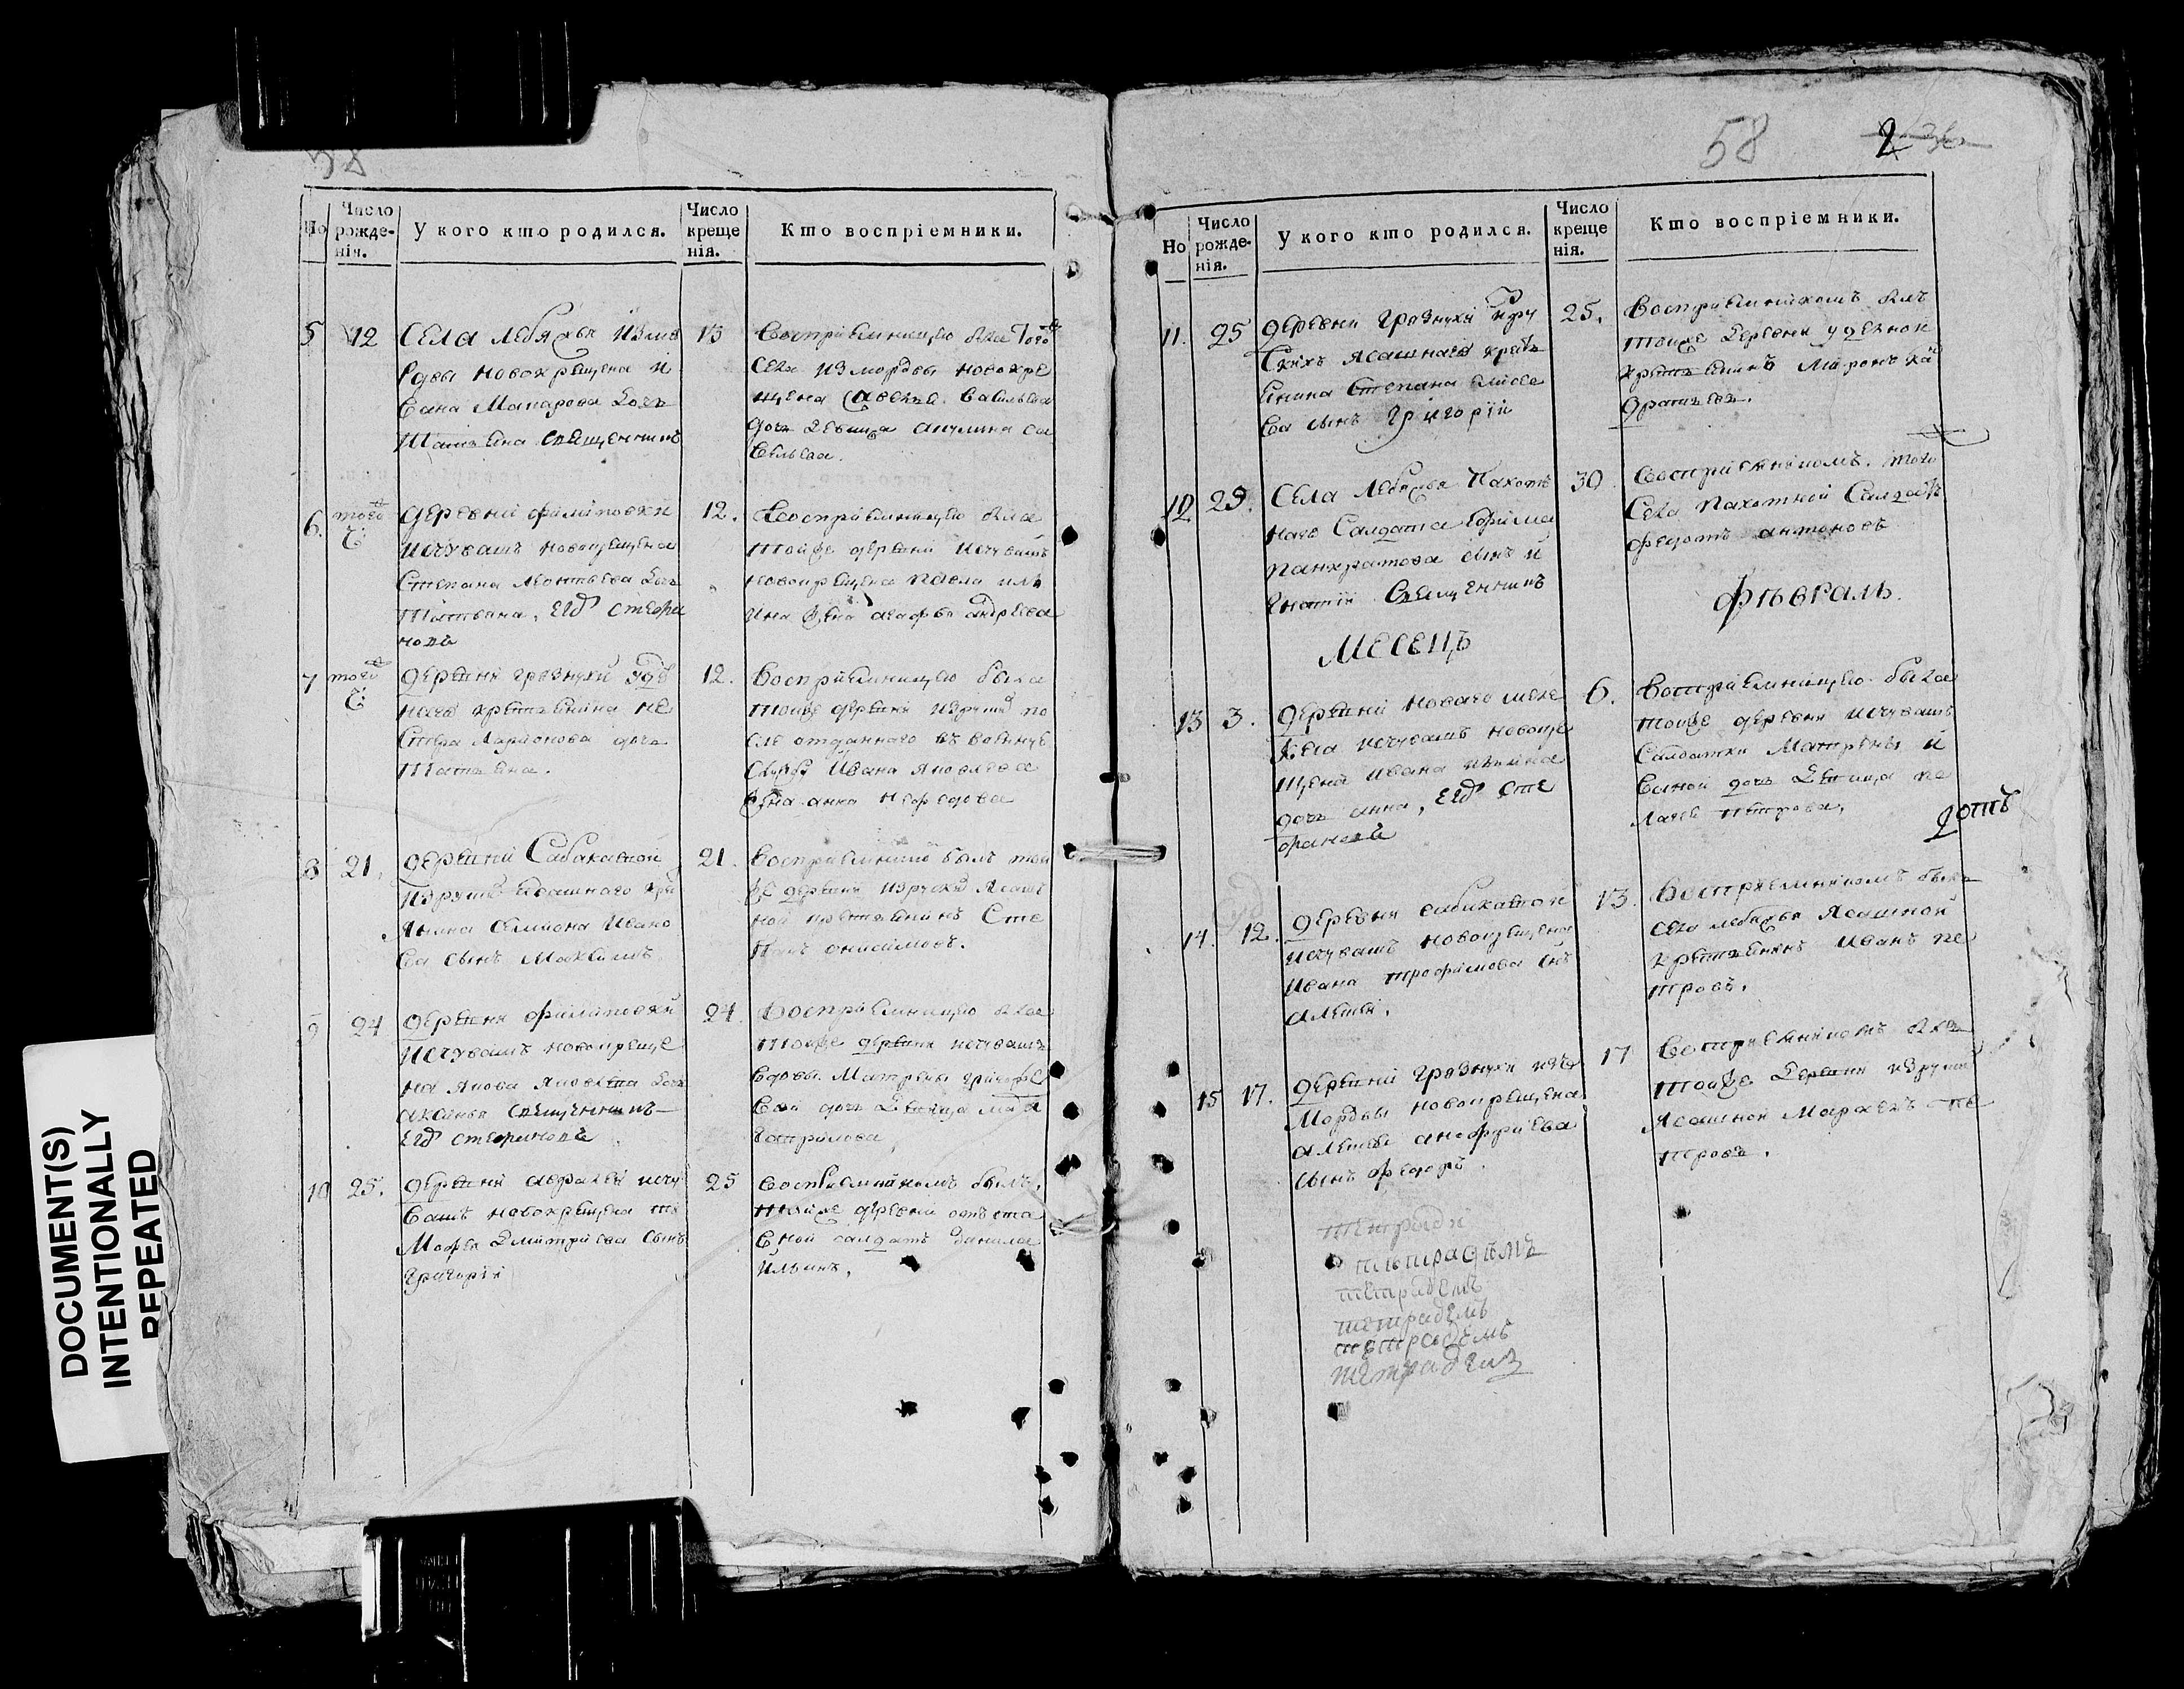 58
Но
Число рожденія.
У кого кто родился.
Число крещенія.
Кто воспріемники.
5
12
Села Лебяжья измо
рдвы новокрещена И
вана Макарова дочь
Татьяна священникъ
13
Воспріемницею была того
села изморdвы новокре
щена Савелья Васильева
дочь девица Акулина Са
вельева.
6.
того ч.
деревни Филиповки
исчувашъ новокрещена
Степана Леонтьева дочь
Татьяна,
12.
Воспріемницею была
тойже деревни исчувашъ
новокрещена Павла
ина жена Агафья Андреева
7
того ч.
деревни грязнухи удѣ
наго крестьянина не
стера Ларионова дочь
Татьяна.
12.
Воспріемницею была
тойже деревни по
сле отданного въ воинску
службу Ивана Яковлева
жена Анна Нефедова
8
21.
деревни Сабакаевой
ясашнаго кре
янина Семиона Ивано
ва сынъ Максимъ.
21.
Воспріемникъ былъ той
же деревни ясаш
ной крестьянинъ Сте
панъ Онисимовъ.
9
24
деревни Филиповки
исчувашъ новокреще
на Якова Яковлева дочь
священникъ
24.
Воспріемницею была
тойже деревни исчувашъ
вдовы Матрены Григорье
вой дочь девица
Гаврилова
10
25.
деревни исчу
вашъ новокрещена ти
мофея Дмитриева сынъ
Григорій
25
Воспріемникомъ былъ
тойже деревни отста
вной салдатъ Данила
Ильинъ.
58
2
Но
Число рожденія.
У кого кто родился.
Число крещенія.
Кто воспріемники.
11.
25
деревни грязнухи изру
скихъ ясашнаго крестья
янина Степана елисее
ва сынъ Григорій
25.
Воспріемникомъ былъ
тойже деревни уделной
крестьянинъ Миронъ Ка
дратьевъ.
12
29.
Села Лебяжья Пахотъ
наго Салдата Ефима
Панкратова сынъ И
гнатій Священникъ
30
Воспріемникомъ того
села пахотной Салдатъ
Федотъ Антоновъ
Месецъ
Фѣвраль.
13
3.
деревни Новаго
исчувашъ новокре
щена Ивана
дочь Анна,
6.
Воспріемницею была
тойже деревни исчувашъ
Салдатки Матрены И
вановой дочь Девица Пе
лагея Петрова.
14.
12.
деревни сабакаевой
исчувашъ новокрещена
Ивана Трофимова сынъ
Алексей.
13.
Воспріемникомъ былъ
села лебяжья Ясашной
крестьянинъ Иванъ Пе
тровъ.
15
17.
деревни грязнухи изъ
Мордвы новокрещена
Алексея Анофриева
сынъ Федоръ.
17
Воспріемникомъ былъ
тойже деревни
Ясашной Пе
тровъ.
тетради
тетрадемъ
тетрадемъ
тетрадемъ
тетрадемъ
DOCUMENT(S)
INTENTIONALLY
REPEATED